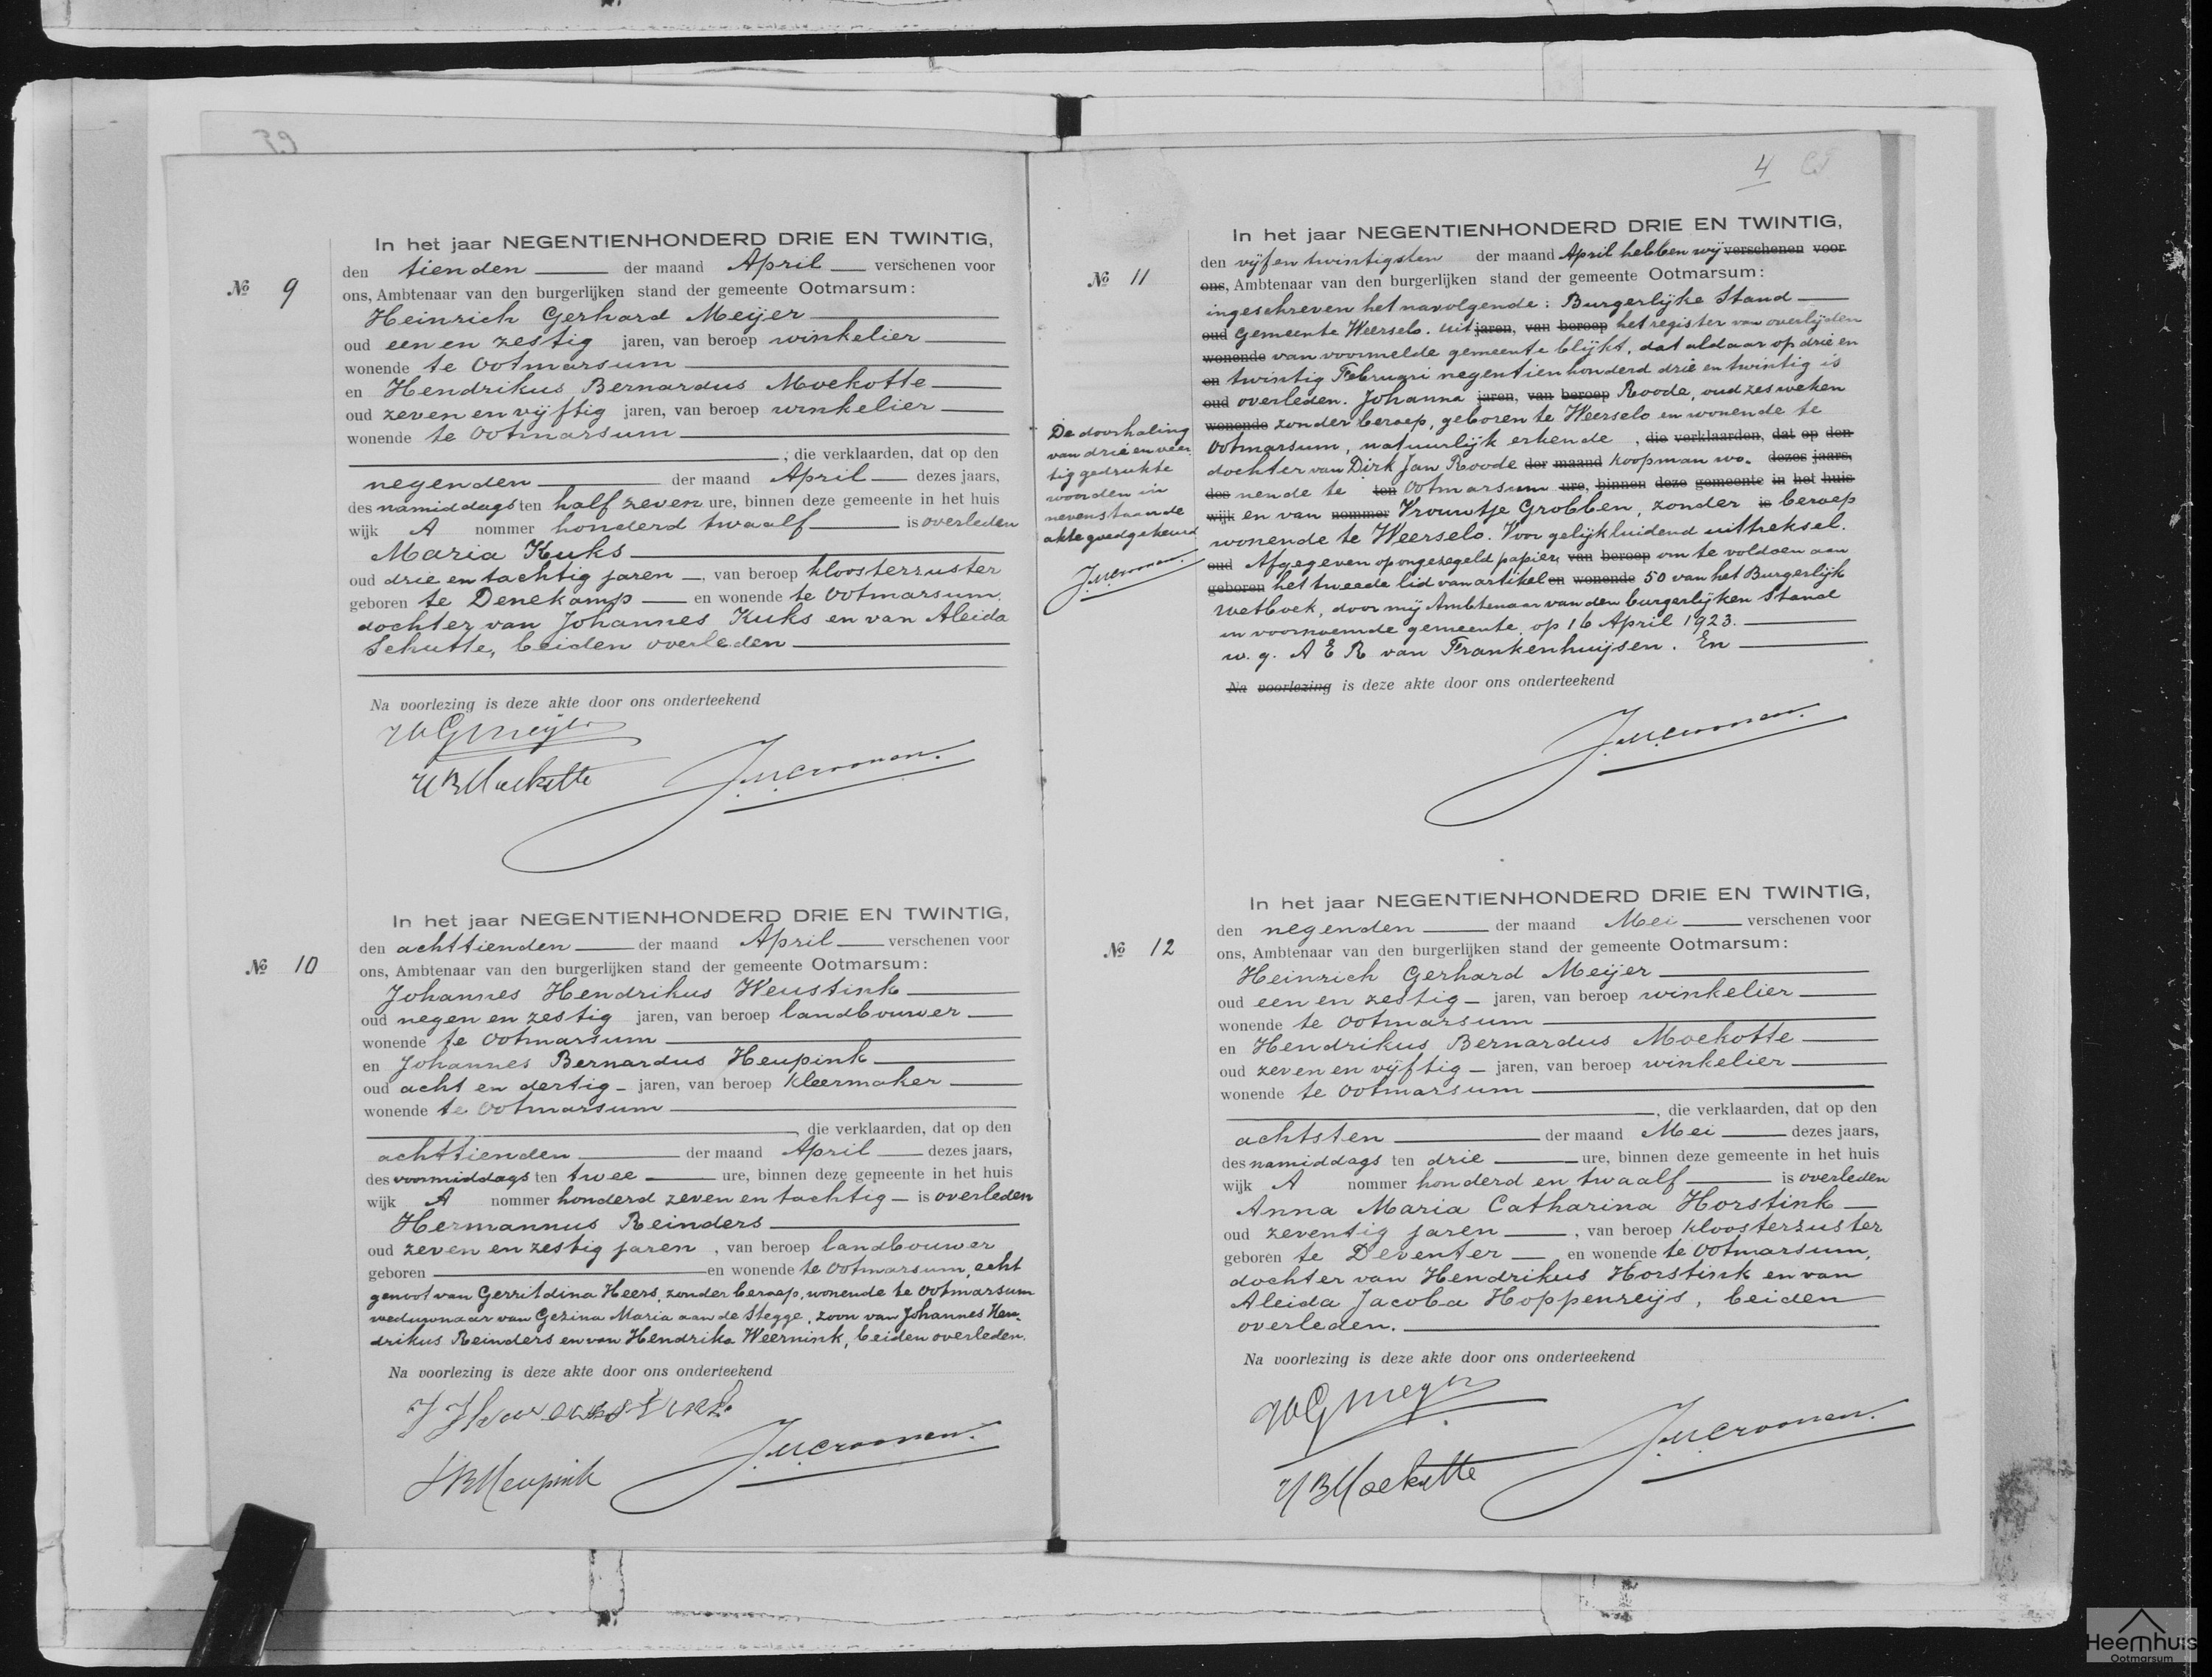 No 9
In het jaar NEGENTIENHONDERD DRIE EN TWINTIG,
den tienden der maand April verschenen voor
ons, Ambtenaar van den burgerlijken stand der gemeente Ootmarsum:
Heinrich Gerhard Meijer
oud een en zestig jaren, van beroep winkelier
wonende te Ootmarsum
en Hendrikus Bernardus Moekotte
oud zeven en vijftig jaren, van beroep winkelier
wonende te Ootmarsum
, die verklaarden, dat op den
negenden der maand April dezes jaars,
des namiddags ten half zeven ure, binnen deze gemeente in het huis
wijk A nommer honderd twaalf is overleden
Maria Kuks
oud drie en tachtig jaren, van beroep kloosterzuster
geboren te Denekamp en wonende te Ootmarsum,
dochter van Johannes Kuks en van Aleida
Schutte, beiden overleden
Na voorlezing is deze akte door ons onderteekend
HG Meijer
HB Moekotte
J.M. Croonen.
No 10
In het jaar NEGENTIENHONDERD DRIE EN TWINTIG,
den achttienden der maand April verschenen voor
ons, Ambtenaar van den burgerlijken stand der gemeente Ootmarsum:
Johannes Hendrikus Weustink
oud negen en zestig jaren, van beroep landbouwer
wonende te Ootmarsum
en Johannes Bernardus Heupink
oud acht en dertig jaren, van beroep kleermaker
wonende te Ootmarsum
, die verklaarden, dat op den
achttienden der maand April dezes jaars,
des voormiddags ten twee ure, binnen deze gemeente in het huis
wijk A nommer honderd zeven en tachtig is overleden
Hermannus Reinders
oud zeven en zestig jaren, van beroep landbouwer
geboren en wonende te Ootmarsum, echt
genoot van Gerritdina Heers, zonder beroep, wonende te Ootmarsum
weduwnaar van Gezina Maria aan de Stegge, zoon van Johannes Hen-
drikus Reinders en van Hendrika Weernink, beiden overleden.
Na voorlezing is deze akte door ons onderteekend
JB Heupink
J.M. Croonen.
4
No 11
In het jaar NEGENTIENHONDERD DRIE EN TWINTIG,
den vijf en twintigsten der maand April hebben wij verschenen voor
ons, Ambtenaar van den burgerlijken stand der gemeente Ootmarsum:
ingeschreven het navolgende: Burgerlijke Stand
oud Gemeente Weerselo. Uit jaren, van beroep het register van overlijden
wonende van voormelde gemeente blijkt, dat aldaar op drie en
en twintig Februari negentienhonderd drie en twintig is
oud overleden. Johanna jaren, van beroep Roode, oud zes weken
wonende zonder beroep, geboren te Weerselo en wonende te
Ootmarsum, natuurlijk erkende , die verklaarden, dat op den
dochter van Dirk Jan Roode der maand koopman wo- dezes jaars,
des nende te ten Ootmarsum ure, binnen deze gemeente in het huis
wijk en van nommer Vrouwtje Grobben, zonder is beroep
wonende te Weerselo. Voor gelijkluidend uittreksel.
oud Afgegeven op ongezegeld papier, van beroep om te voldoen aan
geboren het tweede lid van artikel en wonende 50 van het Burgerlijk
Wetboek, door mij Ambtenaar van den burgerlijken Stand
in voornoemde gemeente, op 16 April 1923.
w. g. A E R van Frankenhuijsen. En
Na voorlezing is deze akte door ons onderteekend
J.M. Croonen.
De doorhaling
van drie en veer
tig gedrukte
woorden in
nevenstaande
akte goedgekeurd
J.M. Croonen.
No 12
In het jaar NEGENTIENHONDERD DRIE EN TWINTIG,
den negenden der maand Mei verschenen voor
ons, Ambtenaar van den burgerlijken stand der gemeente Ootmarsum:
Heinrich Gerhard Meijer
oud een en zestig jaren, van beroep winkelier
wonende te Ootmarsum
en Hendrikus Bernardus Moekotte
oud zeven en vijftig jaren, van beroep winkelier
wonende te Ootmarsum
, die verklaarden, dat op den
achtsten der maand Mei dezes jaars,
des namiddags ten drie ure, binnen deze gemeente in het huis
wijk A nommer honderd en twaalf is overleden
Anna Maria Catharina Horstink
oud zeventig jaren, van beroep kloosterzuster
geboren te Deventer en wonende te Ootmarsum,
dochter van Hendrikus Horstink en van
Aleida Jacoba Hoppenreijs, beiden
overleden.
Na voorlezing is deze akte door ons onderteekend
HG Meijer
HB Moekotte
J.M. Croonen.
Heemhuis
Ootmarsum